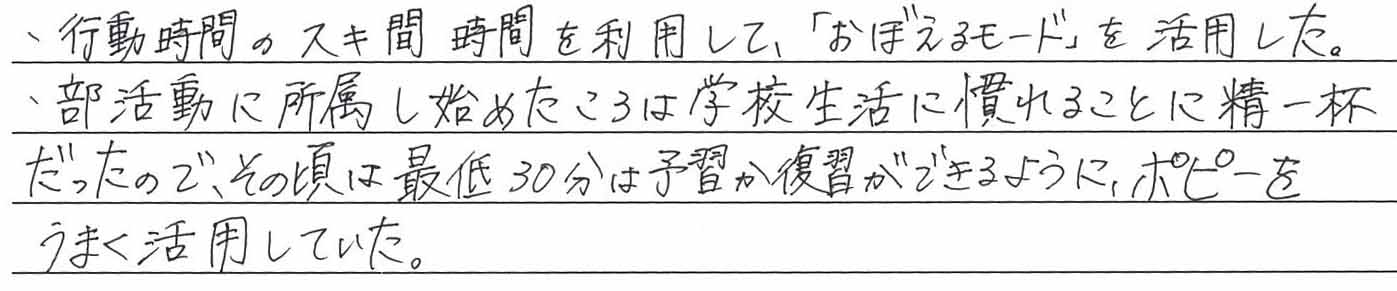 、行動時間のスキ間時間を利用して、「おぼえるモード」を活用した。
、部活動に所属し始めたころは学校生活に慣れることに精一杯
だったので、その頃は最低30分は予習か復習ができるように、ポピーを
うまく活用していた。